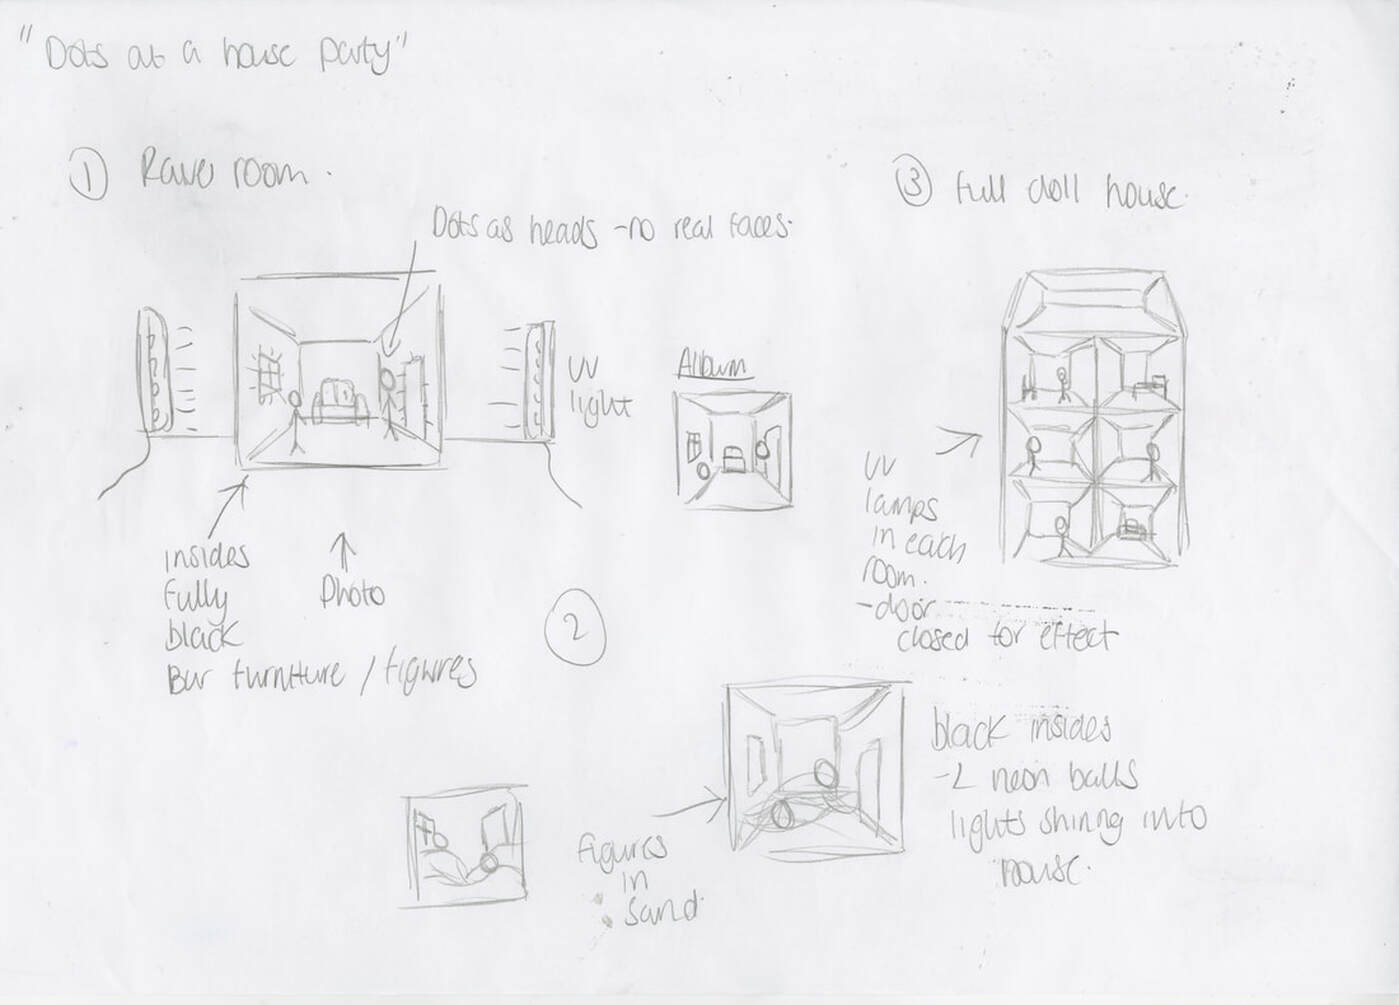 "Dots at a house party"
① Rave room.
Dots as heads - no real faces.
UV
light
Album
insides
fully
black
Bar furniture / figures
Photo
③ full doll house.
UV
lamps
in each
room.
- door
closed for effect
②
figures
in
sand
black insides
- 2 neon balls
lights shining into
house.